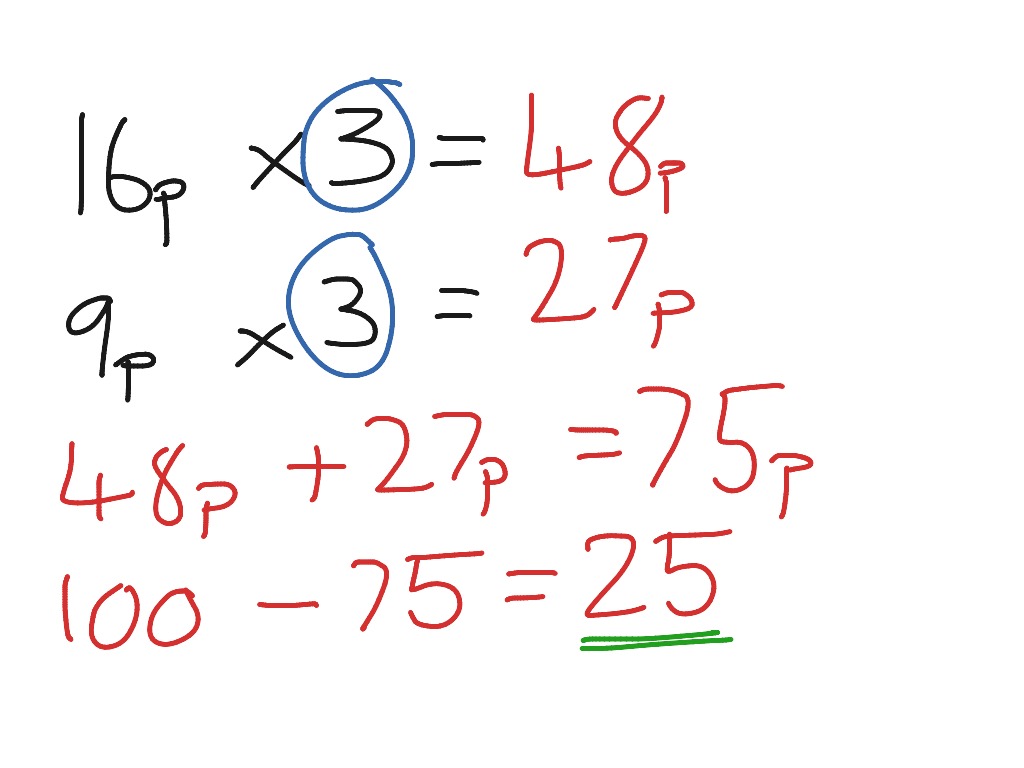 16p × 3 = 48p
9p × 3 = 27p
48p + 27p = 75p
100 - 75 = 25